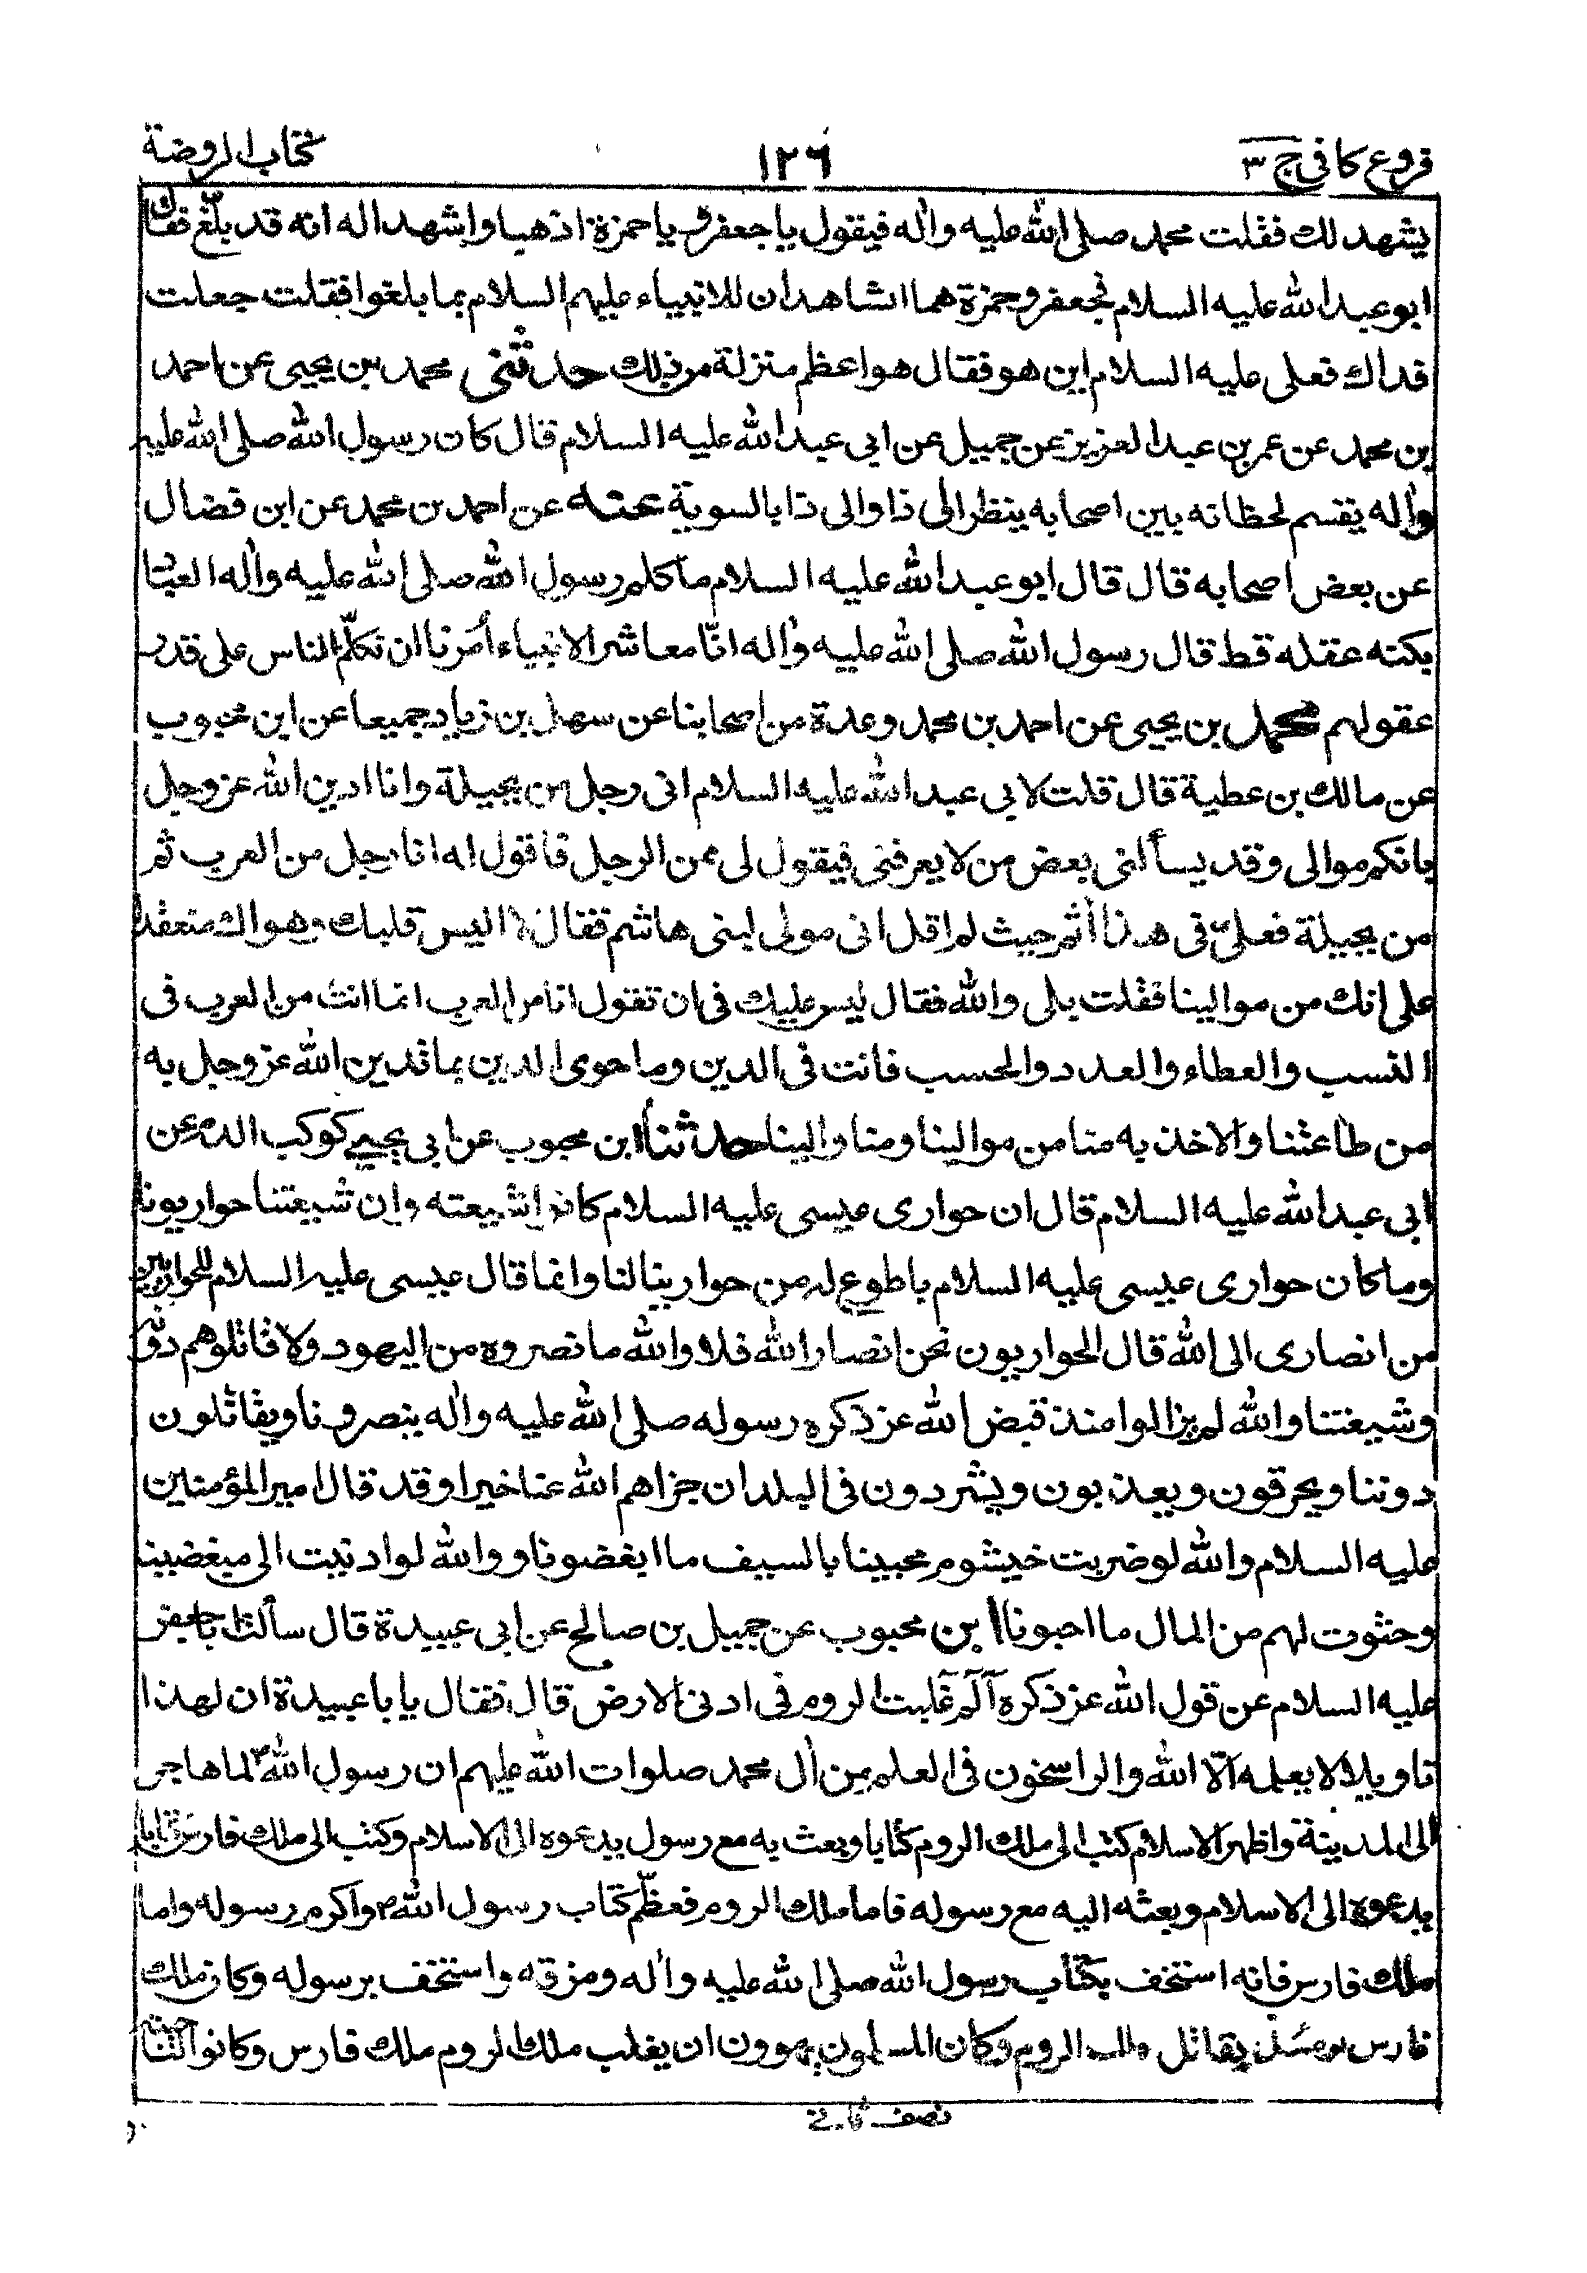 فروع كافى ج ٣
١٢٦
كتاب الروضة
يشهد لك فقلت محمد صلى الله عليه واله فيقول يا جعفر و يا حمزة اذهبا واشهدا له انه قد بلّغ فقال
ابو عبد الله عليه السلام فجعفر وحمزة هما الشاهدان للانبياء عليهم السلام بما بلغوا فقلت جعلت
فداك فعلى عليه السلام اين هو فقال هو اعظم منزلة من ذلك حدثنى محمد بن يحيى عن احمد
بن محمد عن عمر بن عبد العزيز عن جميل عن ابى عبد الله عليه السلام قال كان رسول الله صلى الله عليه
واله يقسم لحظاته بين اصحابه ينظر الى ذا والى ذا بالسوية عنه عن احمد بن محمد عن ابن فضال
عن بعض اصحابه قال قال ابو عبد الله عليه السلام ما كلم رسول الله صلى الله عليه واله العباد
بكنه عقله قط قال رسول الله صلى الله عليه واله انّا معاشر الانبياء أمرنا ان نكلّم الناس على قدر
عقولهم محمد بن يحيى عن احمد بن محمد وعدة من اصحابنا عن سهل بن زياد جميعا عن ابن محبوب
عن مالك بن عطية قال قلت لابى عبد الله عليه السلام انى رجل من بجيلة وانا ادين الله عز وجل
بانكم موالى وقد يسألنى بعض من لا يعرفنى فيقول لى ممن الرجل فاقول له انا رجل من العرب ثم
من بجيلة فعلىّ فى هذا أثم حيث لم اقل انى مولى لبنى هاشم فقال لا اليس قلبك وهواك منعقدا
على انك من موالينا فقلت بلى والله فقال ليس عليك فى ان تقول انا من العرب انما انت من العرب فى
النسب والعطاء والعدد والحسب فانت فى الدين وما حوى الدين بما تدين الله عز وجل به
من طاعتنا والاخذ به منا من موالينا ومنا والينا حدثنا ابن محبوب عن ابى يحيى كوكب الدم عن
ابى عبد الله عليه السلام قال ان حوارى عيسى عليه السلام كانوا شيعته وان شيعتنا حواريونا
وما كان حوارى عيسى عليه السلام باطوع له من حوارينا لنا وانما قال عيسى عليه السلام للحواريين
من انصارى الى الله قال الحواريون نحن انصار الله فلا والله ما نصروه من اليهود ولا قاتلوهم دونه
وشيعتنا والله لم يزالوا منذ قبض الله عز ذكره رسوله صلى الله عليه واله ينصرونا ويقاتلون
دوننا ويحرقون ويعذبون ويشردون فى البلدان جزاهم الله عنا خيرا وقد قال امير المؤمنين
عليه السلام والله لو ضربت خيشوم محبينا بالسيف ما ابغضونا ووالله لو ادنيت الى مبغضينا
وحثوت لهم من المال ما احبونا ابن محبوب عن جميل بن صالح عن ابى عبيدة قال سألت ابا جعفر
عليه السلام عن قول الله عز ذكره آلم غلبت الروم فى ادنى الارض قال فقال يا با عبيدة ان لهذا
تاويلا لا يعلمه الّا الله والراسخون فى العلم من أل محمد صلوات الله عليهم ان رسول الله ص لما هاجر
الى المدينة واظهر الاسلام كتب الى ملك الروم كتابا وبعث به مع رسول يدعوه الى الاسلام وكتب الى ملك فارس كتابا
يدعوه الى الاسلام وبعثه اليه مع رسوله فاما ملك الروم فعظّم كتاب رسول الله ص واكرم رسوله واما
ملك فارس فانه استخف بكتاب رسول الله صلى الله عليه واله ومزقه واستخف برسوله وكان ملك
فارس يومئذ يقاتل ملك الروم وكان المسلمون يهوون ان يغلب ملك الروم ملك فارس وكانوا
نصف ثانى